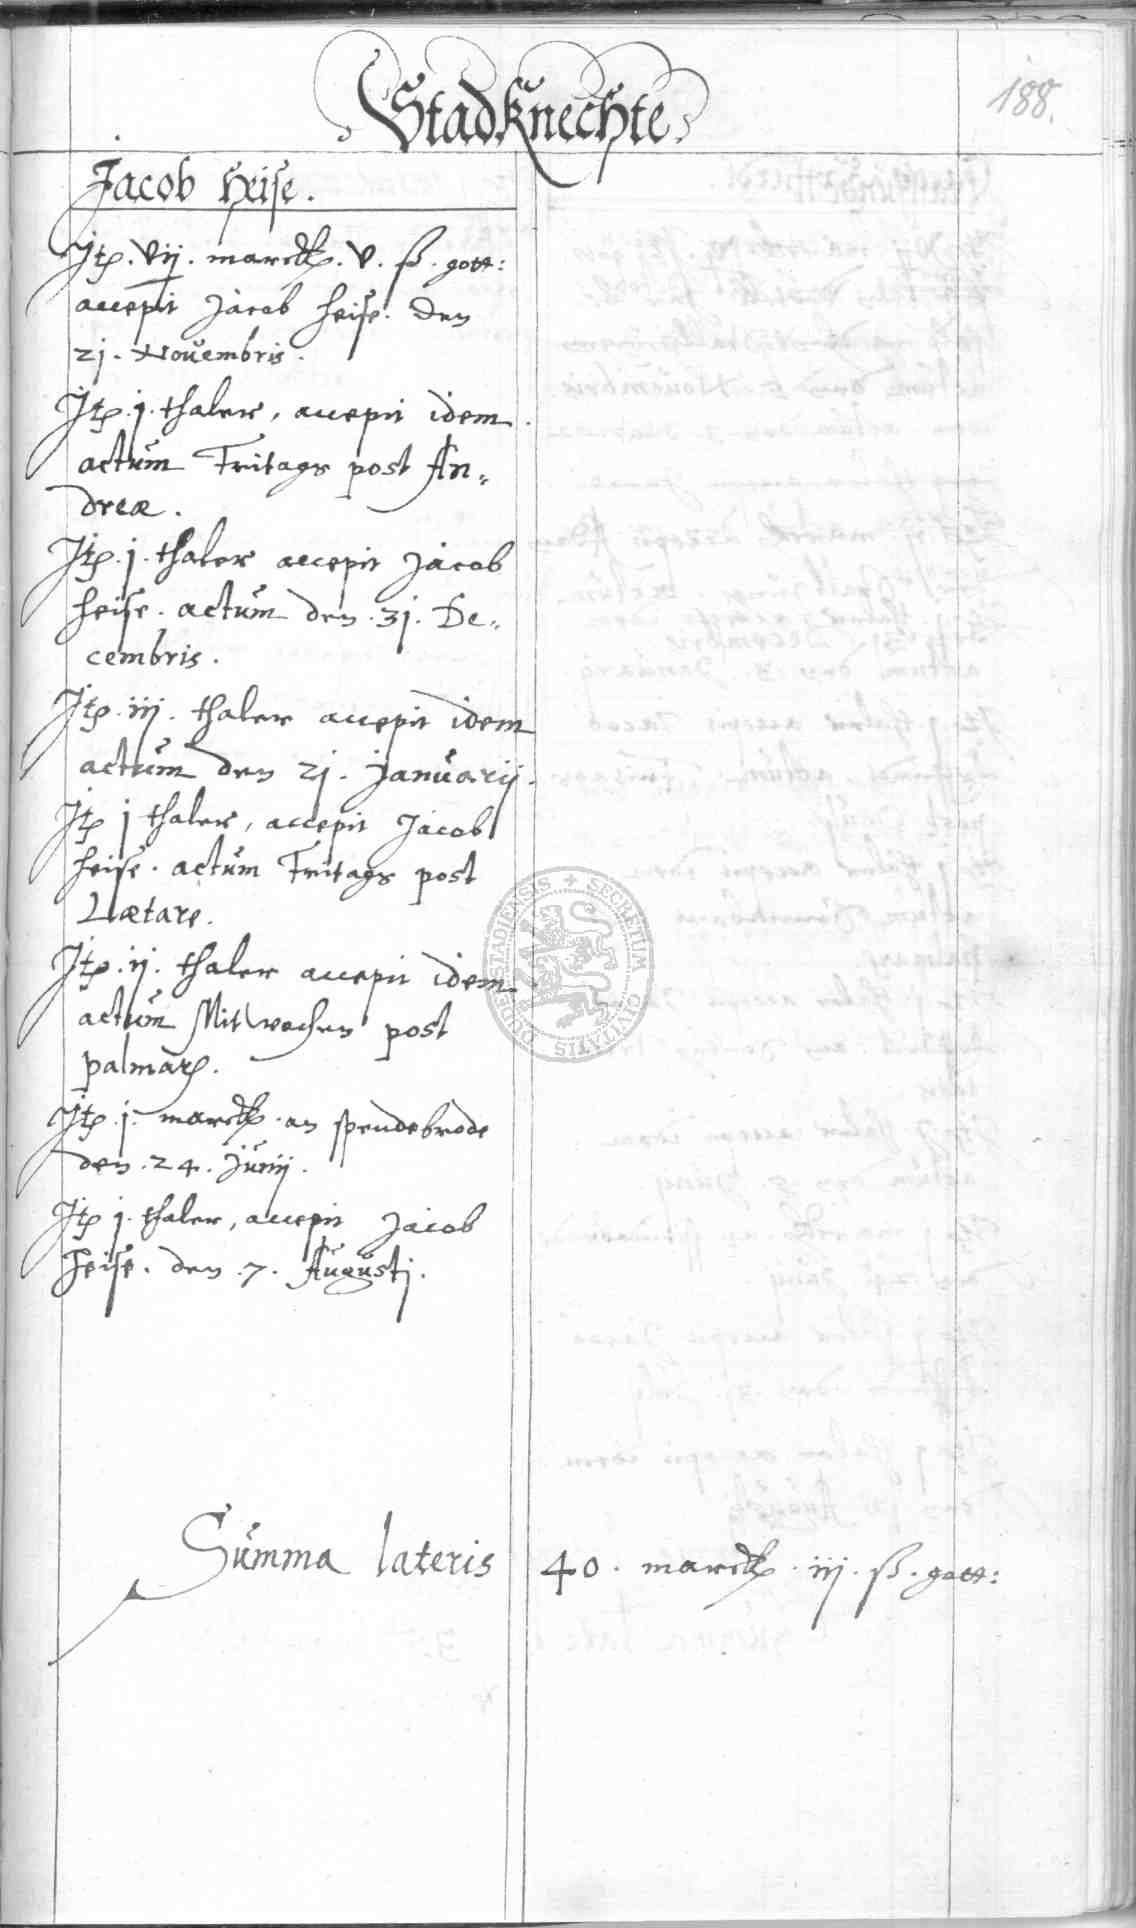 188.
Stadknechte
Jacob Heise.
Jtꝫ. vij. marckꝫ. v. ß. gott:
accepit Jacob Heise. den
21. Nouembris.
Jtꝫ. j. thaler, accepit idem
actum Fritags post An=
dreæ.
Jtꝫ. j. thaler accepit Jacob
Heise. actum den. 31. De=
cembris.
Jtꝫ. iij. thaler accepit idem
actum den 21. Januarij.
Jtꝫ j thaler, accepit Jacob
Heise. actum Fritags post
Lætare.
Jtꝫ. ij. thaler accepit idem
actum Mitwochen post
palmarꝫ.
Jtꝫ. j. marckꝫ. an spendebrode
den. 24. Junij.
Jtꝫ j. thaler, accepit Jacob
Heise. den. 7. Augustj.
SECRETUM CIVITATIS DUDERSTADENSIS
Summa lateris 40. marckꝫ. iij. ß. gott: